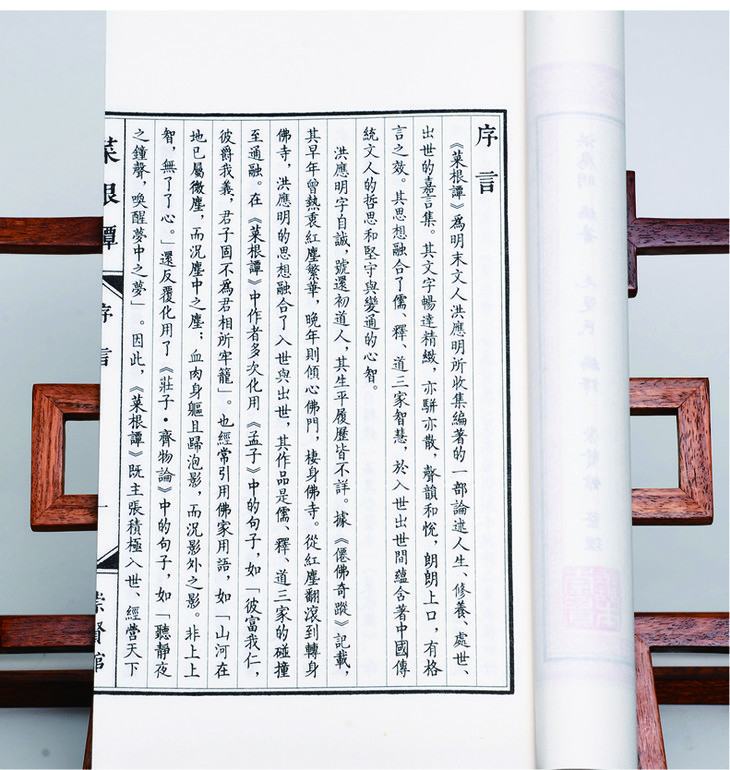 序言
《菜根譚》爲明末文人洪應明所收集編著的一部論述人生、修養、處世、
出世的嘉言集。其文字暢達精緻，亦駢亦散，聲韻和悅，朗朗上口，有格
言之效。其思想融合了儒、釋、道三家智慧，於入世出世間蘊含著中國傳
統文人的哲思和堅守與變通的心智。
洪應明字自誠，號還初道人，其生平履歷皆不詳。據《僊佛奇蹤》記載，
其早年曾熱衷紅塵繁華，晚年則傾心佛門，棲身佛寺。從紅塵翻滾到轉身
佛寺，洪應明的思想融合了入世與出世，其作品是儒、釋、道三家的碰撞
至通融。在《菜根譚》中作者多次化用《孟子》中的句子，如「彼富我仁，
彼爵我義，君子固不爲君相所牢籠」。也經常引用佛家用語，如「山河在
地已屬微塵，而況塵中之塵；血肉身軀且歸泡影，而況影外之影。非上上
智，無了了心。」還反覆化用了《莊子·齊物論》中的句子，如「聽靜夜
之鐘聲，喚醒夢中之夢」。因此，《菜根譚》既主張積極入世、經營天下
菜根譚
序言
一
崇賢館
洪應明 編著